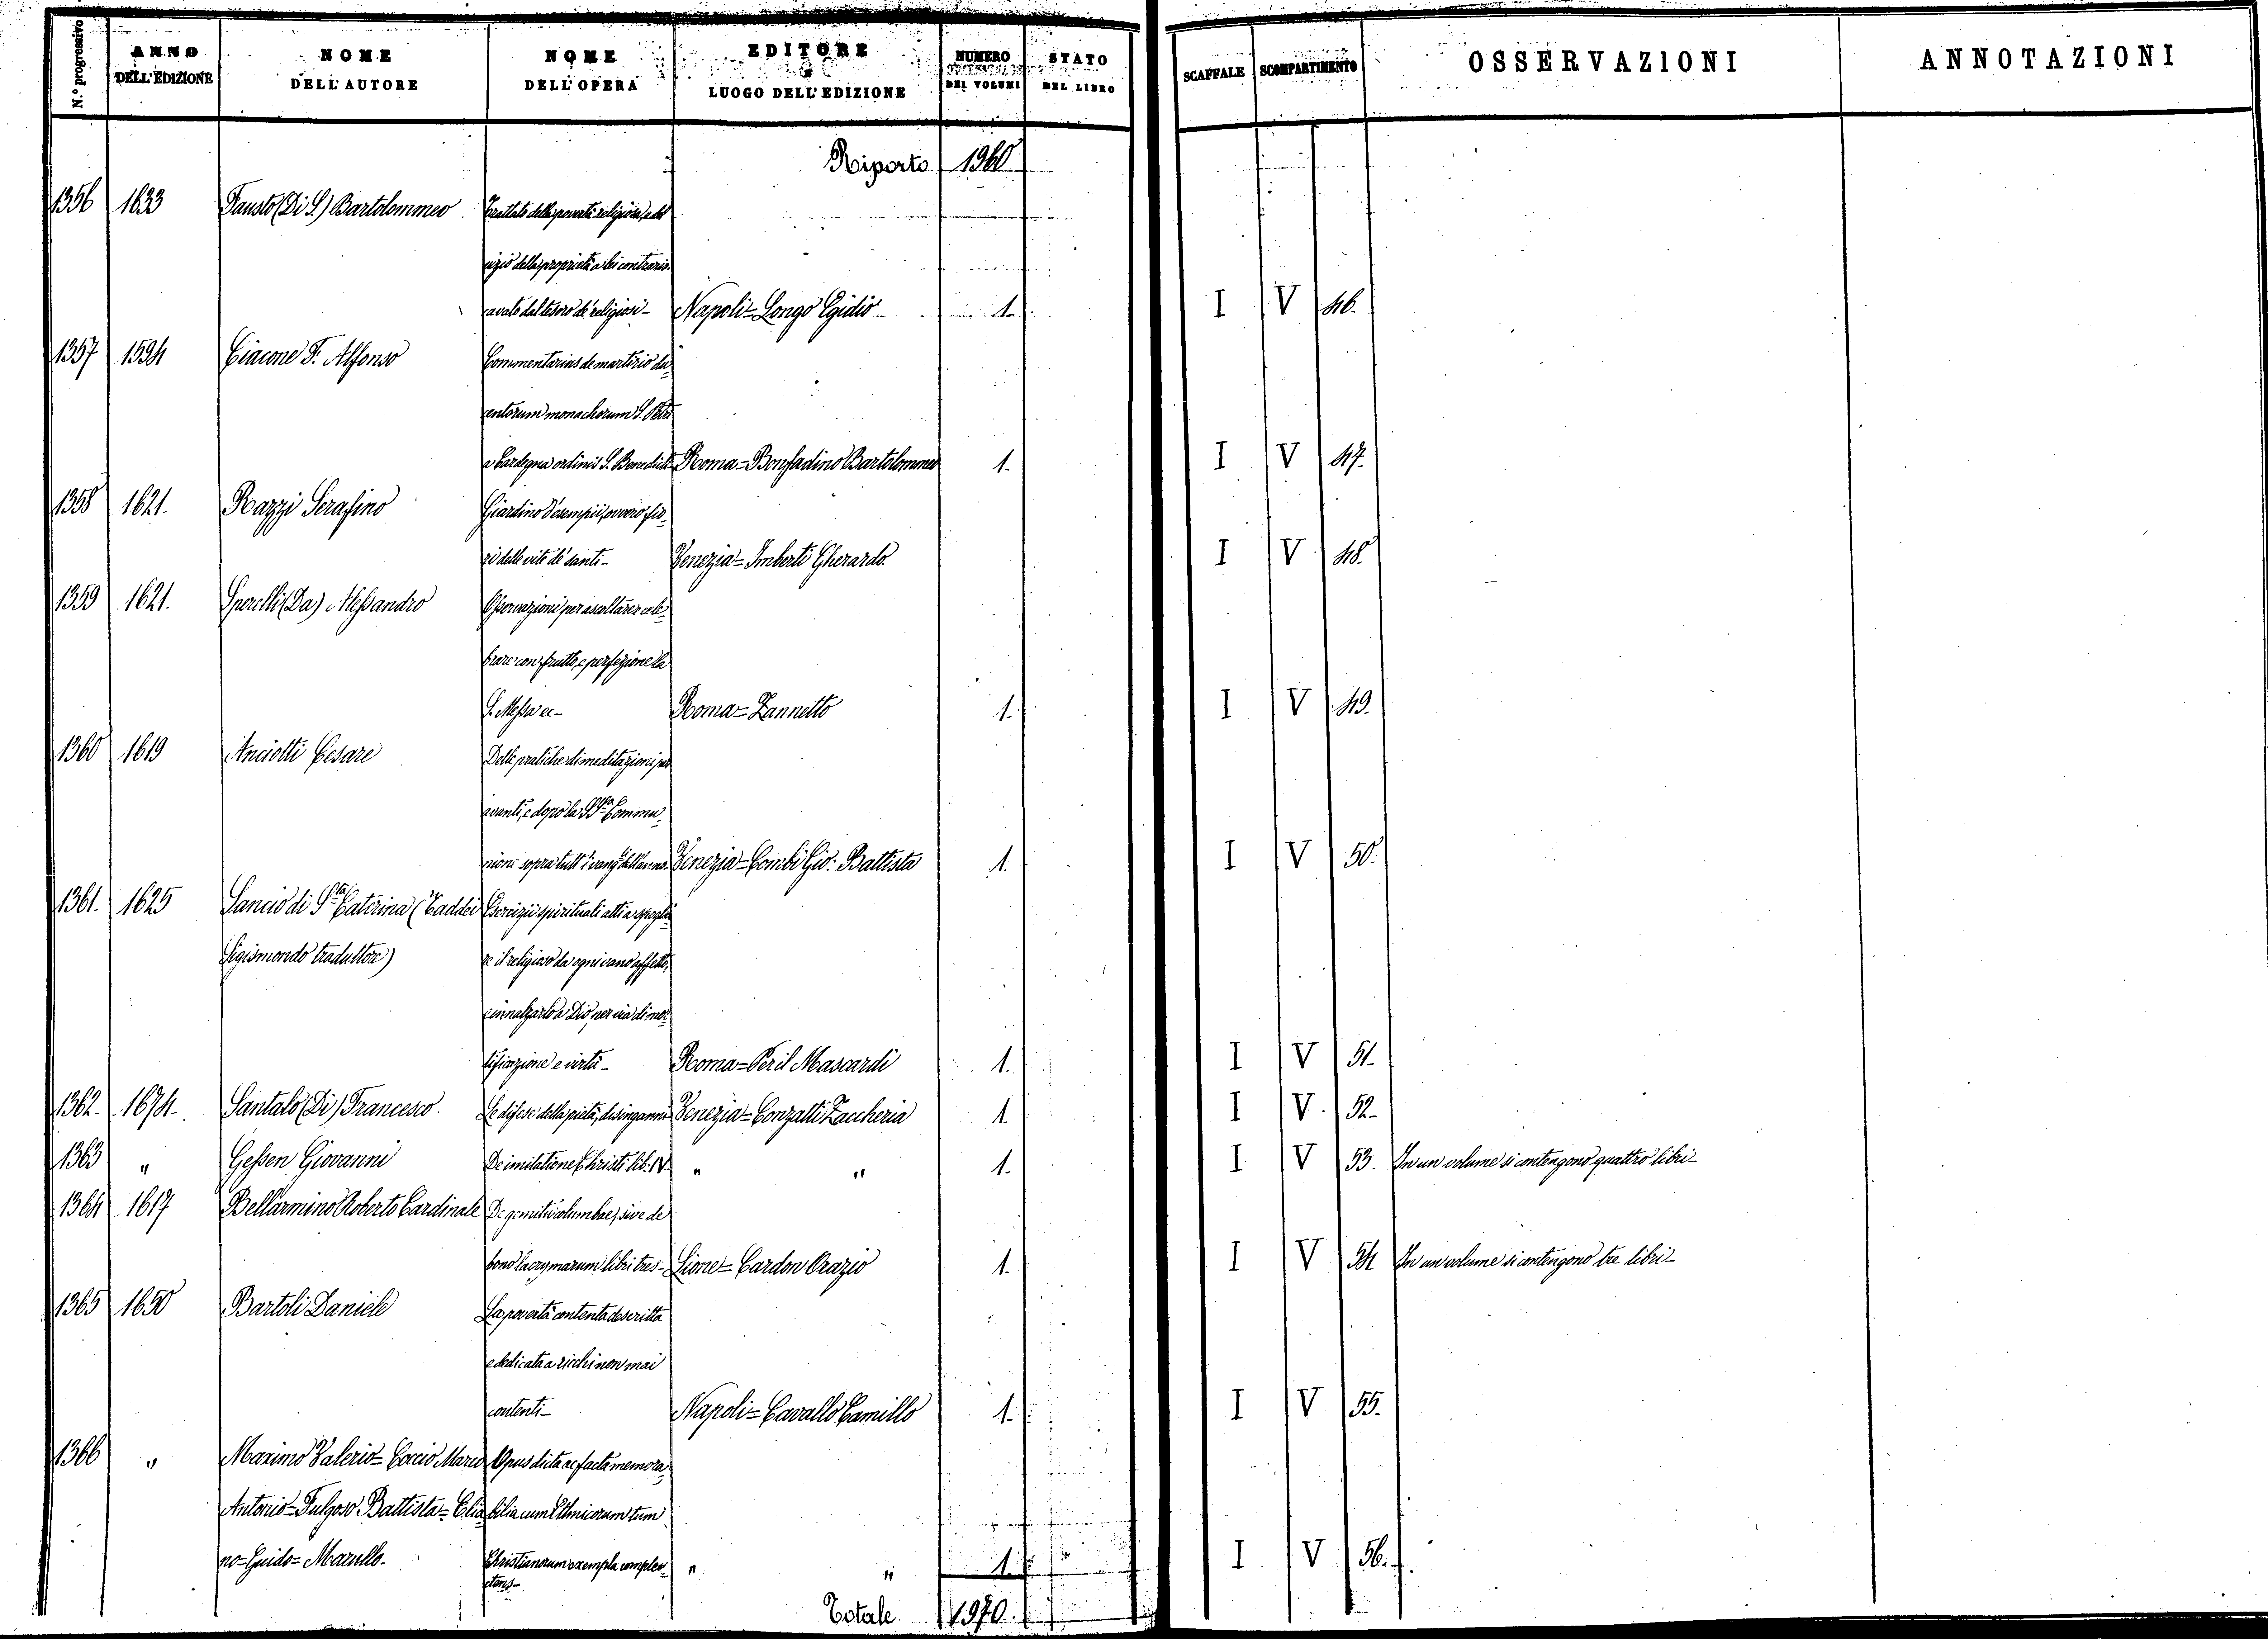 N.º progressivo
ANNO DELL'EDIZIONE
NOME DELL'AUTORE
NOME DELL'OPERA
EDITORE e LUOGO DELL'EDIZIONE
NUMERO DEI VOLUMI
STATO DEL LIBRO
SCAFFALE
SCOMPARTIMENTO
OSSERVAZIONI
ANNOTAZIONI
Riporto 1960
1356 1633 Fausto (Di S.) Bartolommeo Trattato della povertà religiosa, e del
vizio della proprietà a lei contrario
cavato dal tesoro de' religiosi - Napoli = Longo Egidio 1. I V 46.
1357 1594 Ciacone F. Alfonso Commentarius de martirio du=
centorum monachorum S. Petri
a Cardegna ordinis S. Benedicti Roma = Bonfadino Bartolommeo 1. I V 47.
1358 1621. Razzi Serafino Giardino d'esempii, ovvero fio=
ri delle vite de' santi - Venezia = Imberti Gherardo I V 48.
1359 1621. Sperelli (Da) Alessandro Osservazioni per ascoltare e cele=
brare con frutto, e perfezione la
S. Messa ec - Roma = Zannetto 1. I V 49.
1360 1619 Anciotti Cesare Delle pratiche di meditazioni per
avanti, e dopo la SSma Commu=
nione sopra tutt'i vang: dell'anno Venezia = Combi Gio: Battista 1. I V 50.
1361. 1625 Sancio di Sta Caterina (Taddei Esercizii spirituali atti a spoglia=
Sigismondo traduttore) re il religioso da ogni vano affetto,
e innalzarlo a Dio per via di mor=
tificazione e virtù - Roma = Per il Mascardi 1. I V 51.
1362. 1674. Santalo (Di) Francesco Le difese della pietà, disinganni Venezia = Conzatti Zaccheria 1. I V. 52.
1363 " Gessen Giovanni De imitatione Christi lib. IV. " " 1. I V 53. In un volume si contengono quattro libri -
1364 1617 Bellarmino Roberto Cardinale De gemitu columbae, sive de
bono lacrymarum libri tres - Lione = Cardon Orazio 1. I V 54 In un volume si contengono tre libri -
1365 1650 Bartoli Daniele La povertà contenta descritta
e dedicata a' ricchi non mai
contenti - Napoli = Cavallo Camillo 1. I V 55.
1366 " Maximo Valerio = Coccio Marco Opus dicta ac facta memora=
Antonio = Fulgoso Battista = Elia bilia cum Ethnicorum tum
no = Guido = Marullo. Christianorum exempla complec= " " 1. I V 56.
ctens -
Totale 1970.